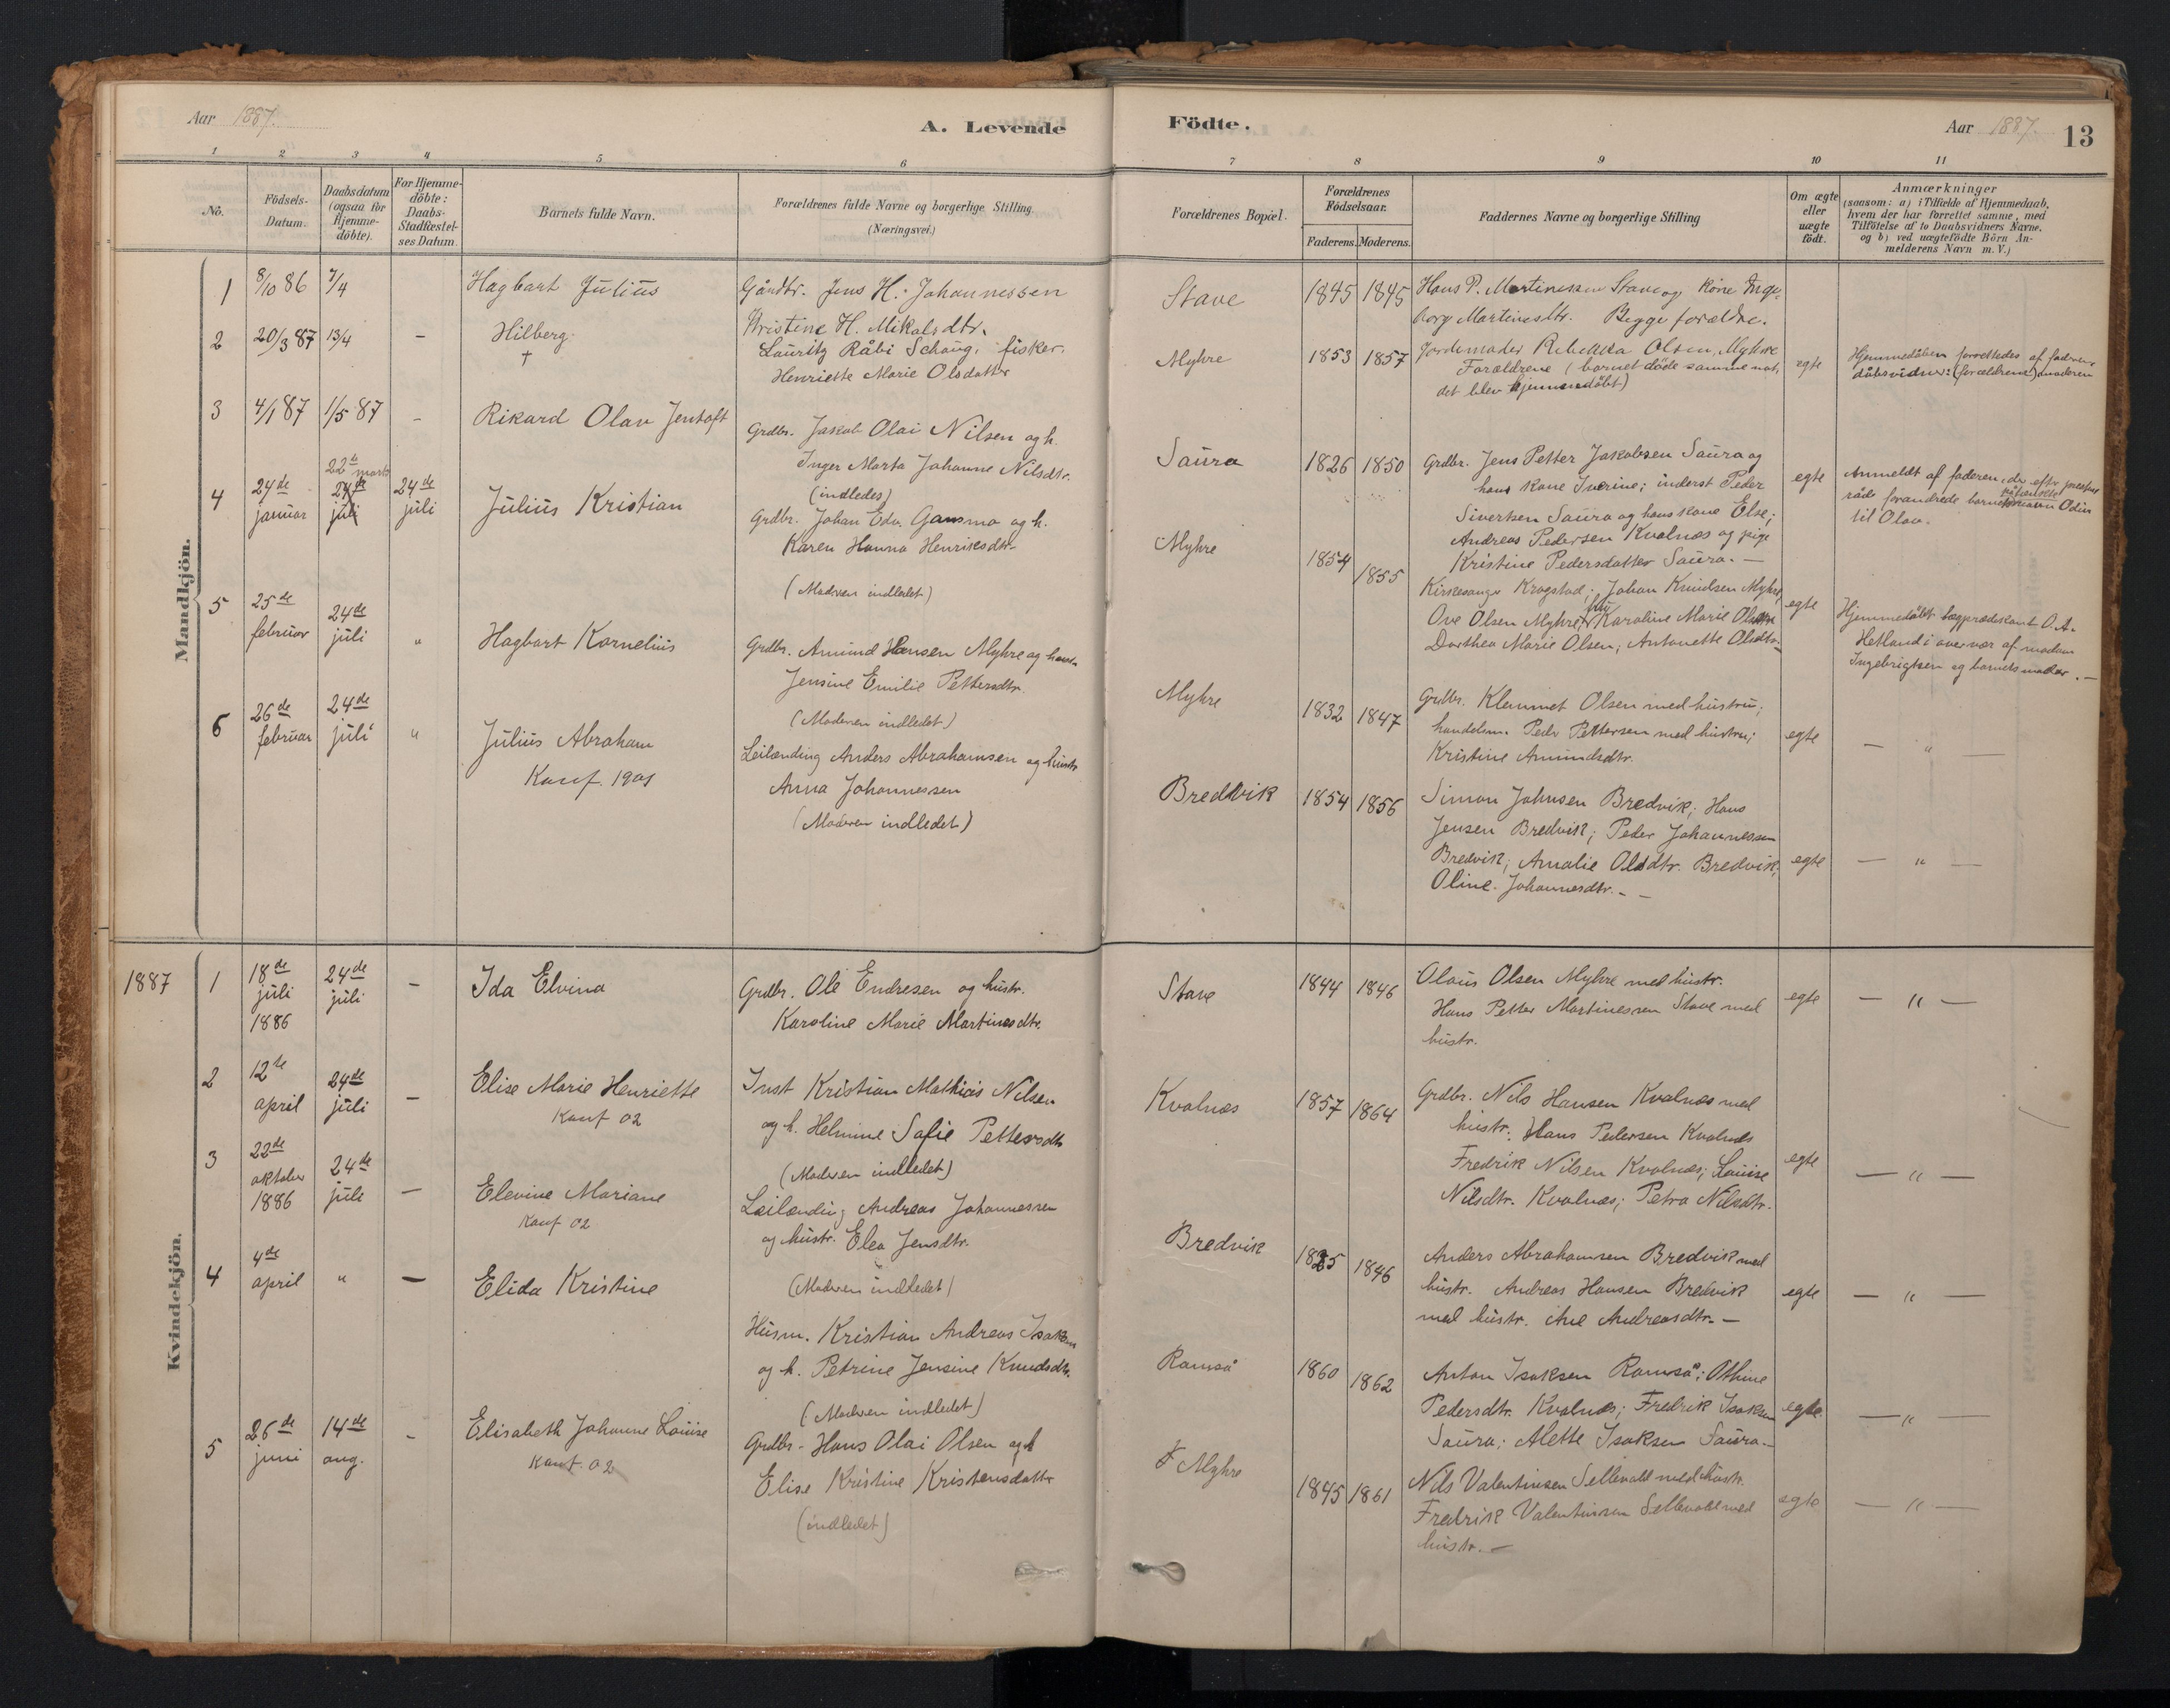 Aar 1887.
A. Levende
Födte.
Aar 1887.
13
1 2 3 4 5 6
7 8 9 10 11
No.
Födsels-
Datum.
Daabsdatum
(ogsaa for
Hjemme-
döbte).
For Hjemme-
döbte:
Daabs-
Stadfæstel-
ses Datum.
Barnets fulde Navn.
Forældrenes fulde Navne og borgerlige Stilling.
(Næringsvei.)
Forældrenes Bopæl.
Forældrenes
Födselsaar.
Faderens. Moderens.
Faddernes Navne og borgerlige Stilling
Om ægte
eller
uægte
födt.
Anmærkninger
(saasom: a) i Tilfælde af Hjemmedaab,
hvem der har forrettet samme, med
Tilföielse af to Daabsvidners Navne.
og b) ved uægtefödte Börn An-
melderens Navn m. V.)
Mandkjön.
1
8/10 86
7/4
Hagbart Julius
Gårdbr. Jens H. Johannessen
Kristine H. Mikalsdtr.
Stave
1845 1845
Hans P. Martinessen Stave og kone Inge-
borg Martinesdtr. Begge forældre.
2
20/3 87
13/4
–
Hilberg
†
Lauritz Råbi Schaug, fisker.
Henriette Marie Olsdatter
Myhre
1853 1857
Jordemoder Rebekka Olsen, Myhre
Forældrene (barnet döde samme nat,
det blev hjemmedöbt)
egte
Hjemmedåben forrettedes af faderen
dåbsvidner: (forældrene) moderen
3
4/1 87
1/5 87
–
Rikard Olav Jentoft
Grdbr. Jakob Olai Nilsen og h.
Inger Marta Johanne Nilsdtr.
(indledes)
Saura
1826 1850
Grdbr. Jens Petter Jakobsen Saura og
hans kone Iverine; inderst Peder
Sivertsen Saura og hans kone Else;
Andreas Pedersen Kvalnæs og pige
Kristine Pedersdatter Saura. –
egte
Anmeldt af faderen, der efter præstens
råd forandrede barnets navn Odin
til Olav.
4
24de
januar
22de marts
24de
juli
24de
juli
Julius Kristian
Grdbr. Johan Edv. Gansmo og h.
Karen Hanna Henriksdtr.
(Moderen indledet)
Myhre
1854 1855
Kirkesanger Krogstad; Johan Knudsen Myhre,
Ove Olsen Myhre, Karoline Marie Olsdtr.
Dorthea Marie Olsen; Antonette Olsdtr.
egte
Hjemmedöbt lægprædikant O. A.
Hetland i overvær af madam
Ingebrigtsen og barnets moder. –
5
25de
februar
24de
juli
"
Hagbart Kornelius
Grdbr. Amund Hansen Myhre og
Jensine Emilie Pettersdtr.
(Moderen indledet)
Myhre
1832 1847
Grdbr. Klemmet Olsen med hustru;
handelsm. Peder Pettersen med hustru;
Kristine Amundsdtr.
egte
– " –
6
26de
februar
24de
juli
"
Julius Abraham
Konf. 1901
Leilænding Anders Abrahamsen og hustr.
Anna Johannessen
(Moderen indledet)
Bredvik
1854 1856
Simon Johnsen Bredvik; Hans
Jensen Bredvik; Peder Johannessen
Bredvik; Amalie Olsdtr. Bredvik;
Oline Johannesdtr. –
egte
– " –
Kvindekjön.
1887
1
18de
juli
1886
24de
juli
–
Ida Elvina
Grdbr. Ole Endresen og hustr.
Karoline Marie Martinesdtr.
Stave
1844 1846
Olaus Olsen Myhre med hustr.
Hans Petter Martinessen Stave med
hustr.
egte
– " –
2
12te
april
24de
juli
–
Elise Marie Henriette
Konf 02
Inst Kristian Mathias Nilsen
og h. Helmine Sofie Pettersdtr
(Moderen indledet)
Kvalnæs
1857 1864
Grdbr. Nils Hansen Kvalnæs med
hustr. Hans Pedersen Kvalnæs
Fredrik Nilsen Kvalnæs; Louise
Nilsdtr. Kvalnæs; Petra Nilsdtr.
egte
– " –
3
22de
oktober
1886
24de
juli
–
Elevine Mariane
Konf 02
Leilænding Andreas Johannessen
og hustr. Elea Jensdtr.
(Moderen indledet)
Bredvik
1825 1846
Anders Abrahamsen Bredvik med
hustr. Andreas Hansen Bredvik
med hustr. Ane Andreasdtr. –
egte
– " –
4
4de
april
"
–
Elida Kristine
Husm. Kristian Andreas Isaksen
og h. Petrine Jensine Knudsdtr.
(Moderen indledet)
Ramså
1860 1862
Anton Isaksen Ramså; Othine
Pedersdtr. Kvalnæs; Fredrik Isaksen
Saura; Alette Isaksen Saura –
egte.
– " –
5
26de
juni
14de
aug.
–
Elisabeth Johanne Louise
Konf. 02
Grdbr. Hans Olai Olsen og h
Elise Kristine Kristensdatter
(indledet)
Myhre
1845 1861
Nils Valentinsen Sellevold med hustr.
Fredrik Valentinsen Sellevold med
hustr. –
egte
– " –